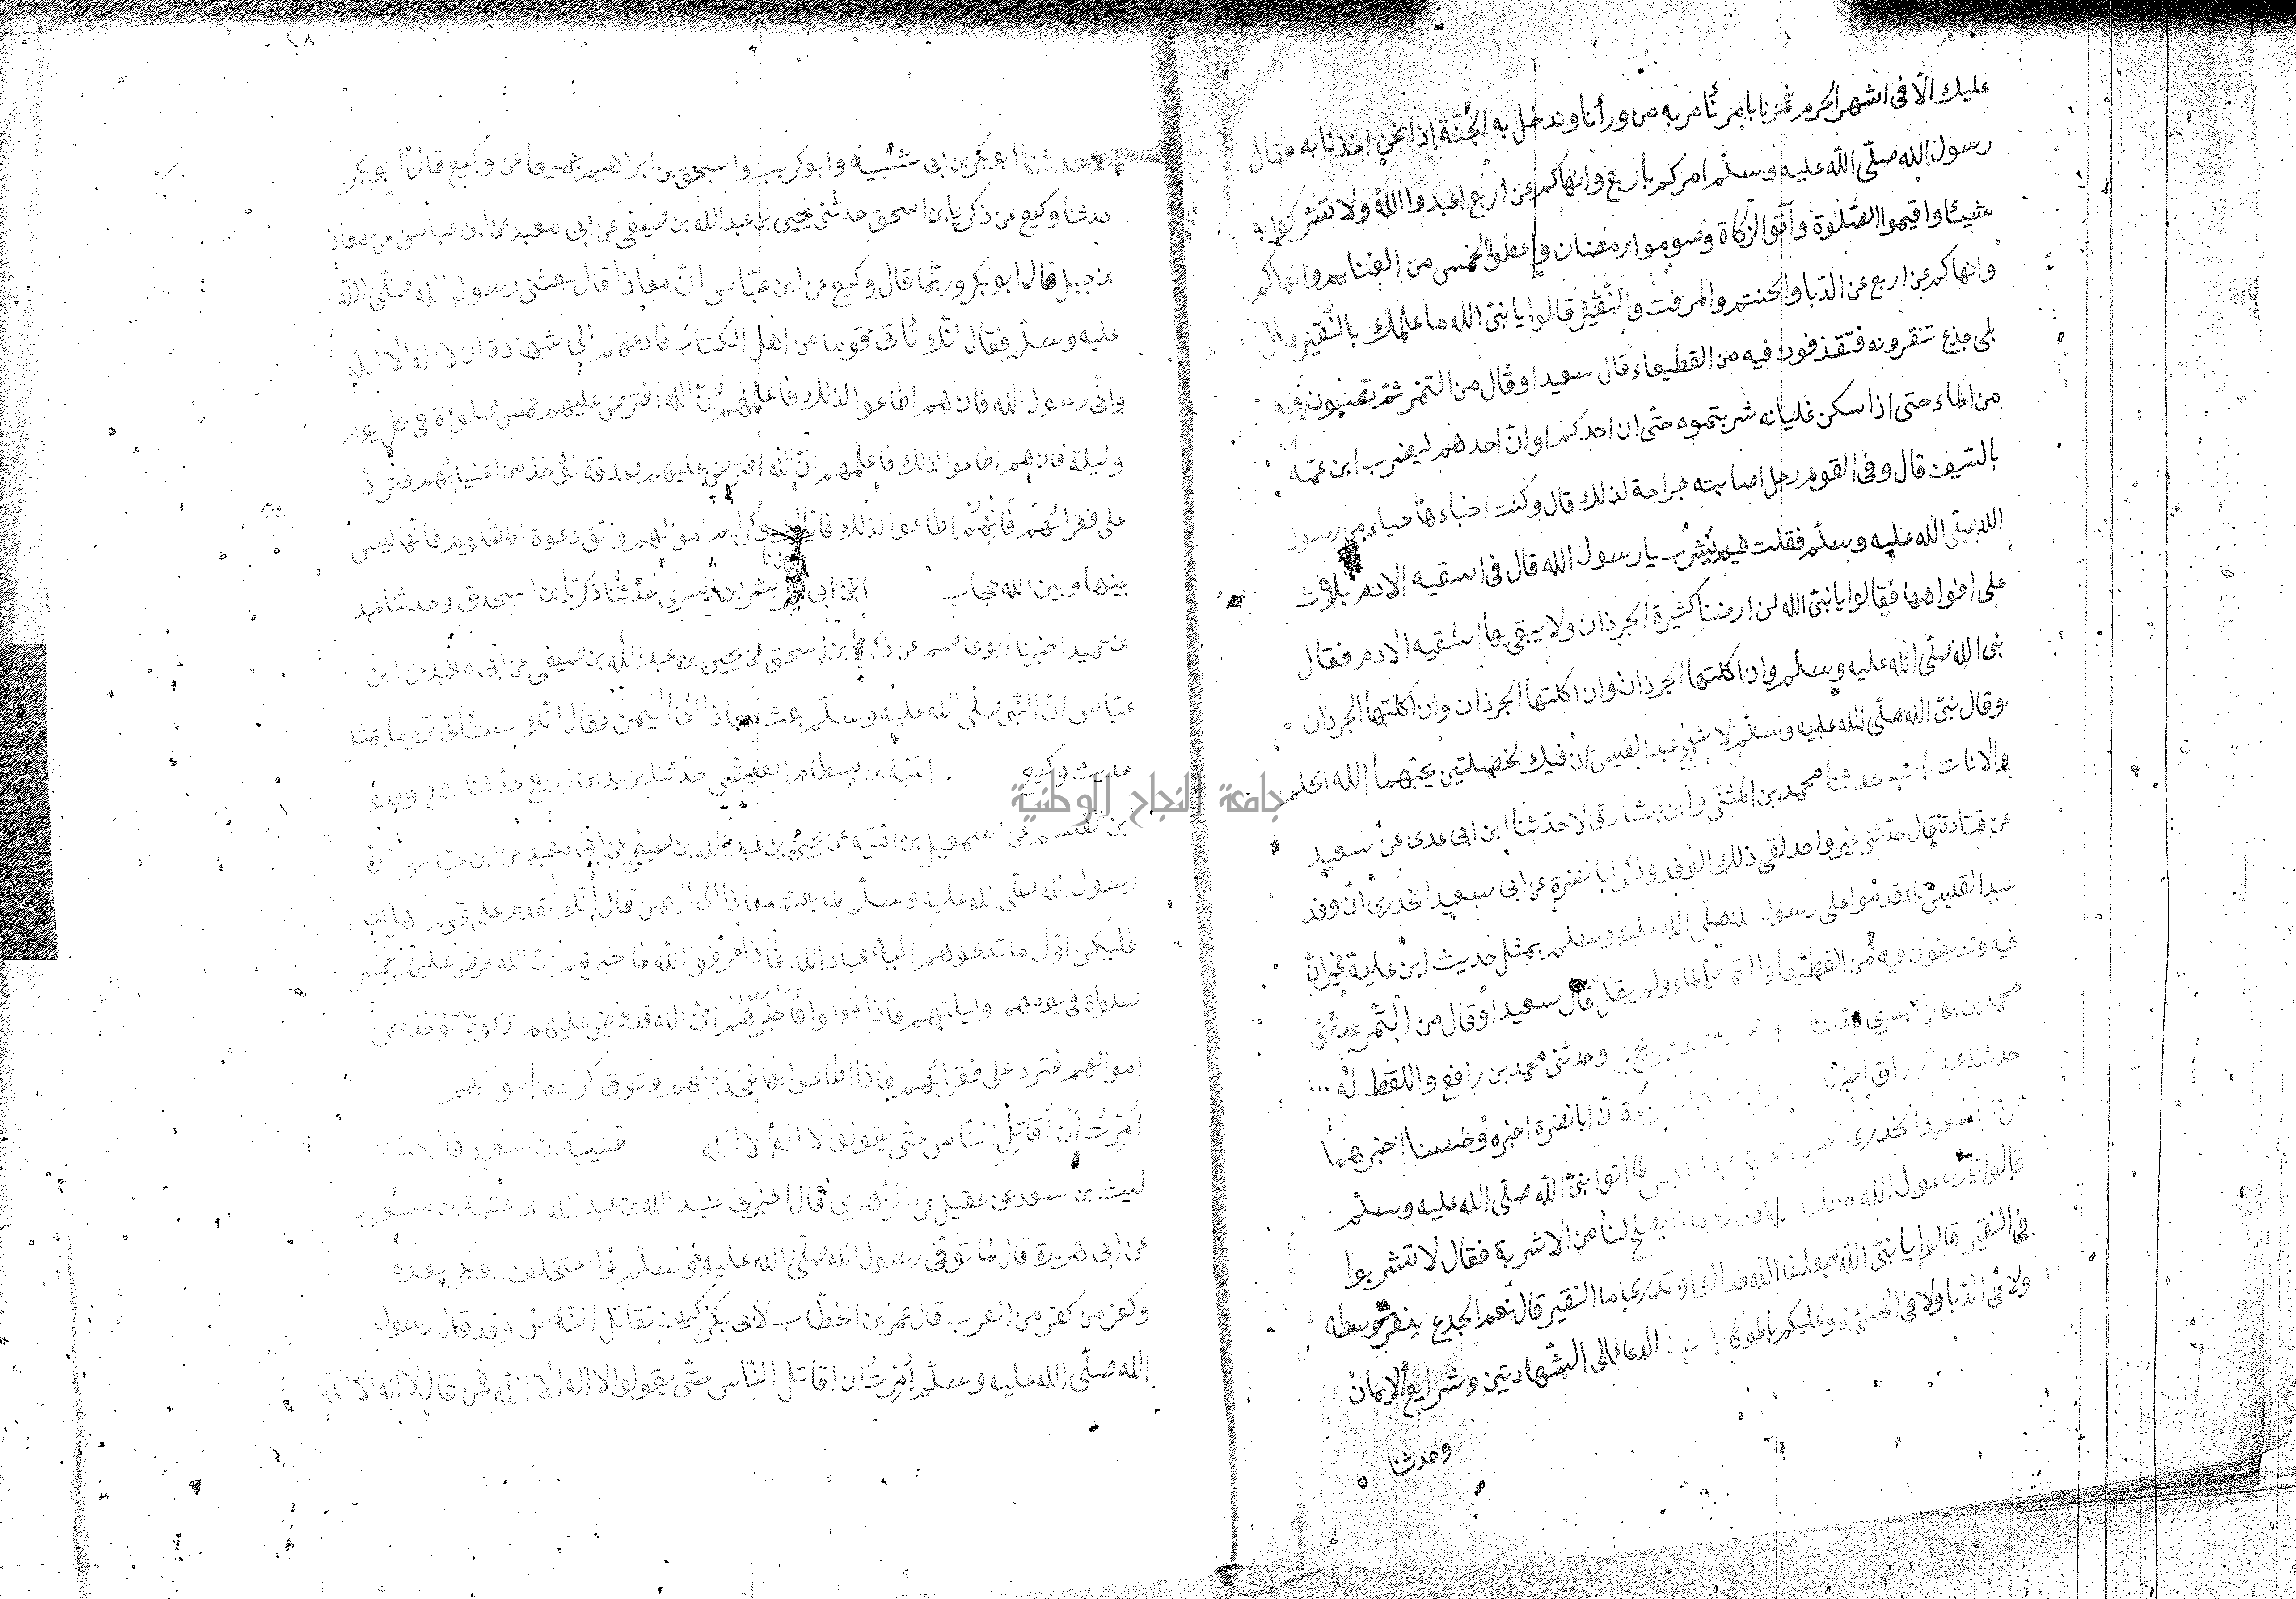 عليك الّا فى اشهر الحرم فمرنا بامر نأمر به من ورأنا وندخل به الجنّة إذا نحن اخذنا به فقال
رسول الله صلّى الله عليه وسلّم امركم باربع وانهاكم عن اربع اعبدوا الله ولا تشركوا به
شيئا واقيموا الصّلوة وآتوا الزكاة وصوموا رمضنان واعطوا الخمس من الغنايم وانهاكم
وانهاكم عن اربع عن الدّبا والحنتم والمزفت والنّقير قالوا يا نبىّ الله ما علمك بالنّقير قال
بلى جذع تنقرونه فتقذفون فيه من القطيعاء قال سعيد اوقال من التمر ثمّ تصبّون فيه
من الماء حتى اذا سكن غليانه شربتموه حتّى ان احدكم او انّ احدهم ليضرب ابن عمّه
بالسّيف قال وفى القوم رجل اصابته جراحة لذلك قال وكنت اخباءها حياء من رسول
الله صلّى الله عليه وسلّم فقلت فيم نشرب يا رسول الله قال فى اسقيه الادم يلاث
على افواهها فقالوا يا نبىّ الله ان ارضنا كثيرة الجرذان ولا يبقى بها اسقيه الادم فقال
نبى الله صلّى الله عليه وسلّم وان اكلتها الجرذان وان اكلتها الجرذان وان اكلتها الجرذان
وقال نبىّ الله صلّى الله عليه وسلّم لا شجّ عبد القيس ان فيك لخصلتين يحبّهما الله الحلم
والانات باب حدثنا محمد بن المثنّى وابن بشار قالا حدّثنا ابن ابى عدى عن سعيد
عن قتادة قال حدّثنى غير واحد لقى ذلك الوفد وذكر ابا نضرة عن ابى سعيد الخدرى انّ وفد
عبد القيس لما قدموا على رسول الله صلّى الله عليه وسلم بمثل حديث ابن علية غير انّ
فيه وتذيفون فيه من القطيعا والتمر والماء ولم يقل قال سعيد اوقال من التّمر حدثنى
محمد بن بكار البصري حدّثنا وحدثنى محمد بن رافع واللفظ له
حدثنا عبد الرزاق اخبرنا انّ ابا نضرة اخبره وحسنا اخبرهما
انّ ابا سعيد الخدرى لما اتوا نبىّ الله صلّى الله عليه وسلّم
قالوا يا رسول الله جعلنا ماذا يصلح لنا من الاشربة فقال لا تشربوا
فى النقير قالوا يا نبىّ الله جعلنا الله فداك او تدرى ما النقير قال نعم الجدع ينقر وسطه
ولا فى الدّبا ولا فى الحنتمة وعليكم بالموكا الدعاء الى الشّهادتين وشرايع الايمان
وحدثنا
وحدثنا ابو بكر بن ابى شيبة وابو كريب واسحق بن ابراهيم جميعا عن وكيع قال ابو بكر
حدثنا وكيع عن ذكريا بن اسحق حدثنى يحيى بن عبد الله بن صيفى عن ابى معبد عن ابن عباس عن معاذ
بن جبل قال ابو بكر وربّما قال وكيع عن ابن عبّاس انّ معاذا قال بعثنى رسول الله صلّى الله
عليه وسلّم فقال انّك تأتى قوما من اهل الكتاب فادعهم الى شهادة ان لا اله الا الله
وانّى رسول الله فان هم اطاعوا لذلك فاعلمهم انّ الله افترض عليهم خمس صلواة فى كل يوم
وليلة فان هم اطاعوا لذلك فاعلمهم انّ الله افترض عليهم صدقة تؤخذ من اغنيائهم فتردّ
على فقرائهم فان هم اطاعوا لذلك فايّاك وكرايم اموالهم واتق دعوة المظلوم فانّها ليس
بينها وبين الله حجاب ابن ابى عمر بشر ابن السرى حدّثنا ذكريّا بن اسحق وحدثنا عبد
بن حميد اخبرنا ابو عاصم عن ذكريا بن اسحق عن يحيى بن عبد الله بن صيفى عن ابى معبد عن ابن
عبّاس انّ النّبى صلّى الله عليه وسلّم بعث معاذا الى اليمن فقال انّك ستأتى قوما بمثل
حديث وكيع اميّة بن بسطام العيشى حدّثنا يزيد بن زريع حدّثنا روح وهو
بن القسم عن اسمعيل بن اميّه عن يحيى بن عبد الله بن صيفى عن ابى معبد عن ابن عباس انّ
رسول الله صلّى الله عليه وسلّم لما بعث معاذا الى اليمن قال انّك تقدم على قوم اهل كتاب
فليكن اوّل ما تدعوهم اليه عباد الله فاذا عرفوا الله فاخبرهم انّ الله فرض عليهم خمس
صلواة فى يومهم وليلتهم فاذا فعلوا فأخبرهم انّ الله قد فرض عليهم زكوة تؤخذ من
اموالهم فترد على فقرائهم فاذا اطاعوا بها فخذ منهم وتوق كرايم اموالهم
أمرت أن أقاتل النّاس حتّى يقولوا لا اله الا الله قتيبة بن سعيد قال حدثنا
ليث بن سعد عن عقيل عن الزّهرى قال اخبرنى عبيد الله بن عبد الله بن عتبة بن مسعود
عن ابى هريرة قال لما توفى رسول الله صلّى الله عليه وسلّم واستخلف ابو بكر بعده
وكفر من كفر من العرب قال عمر بن الخطّاب لابى بكر كيف تقاتل النّاس وقد قال رسول
الله صلّى الله عليه وسلّم أمرت ان اقاتل النّاس حتّى يقولوا لا اله الا الله فمن قال لا اله الا الله
جامعة النجاح الوطنية